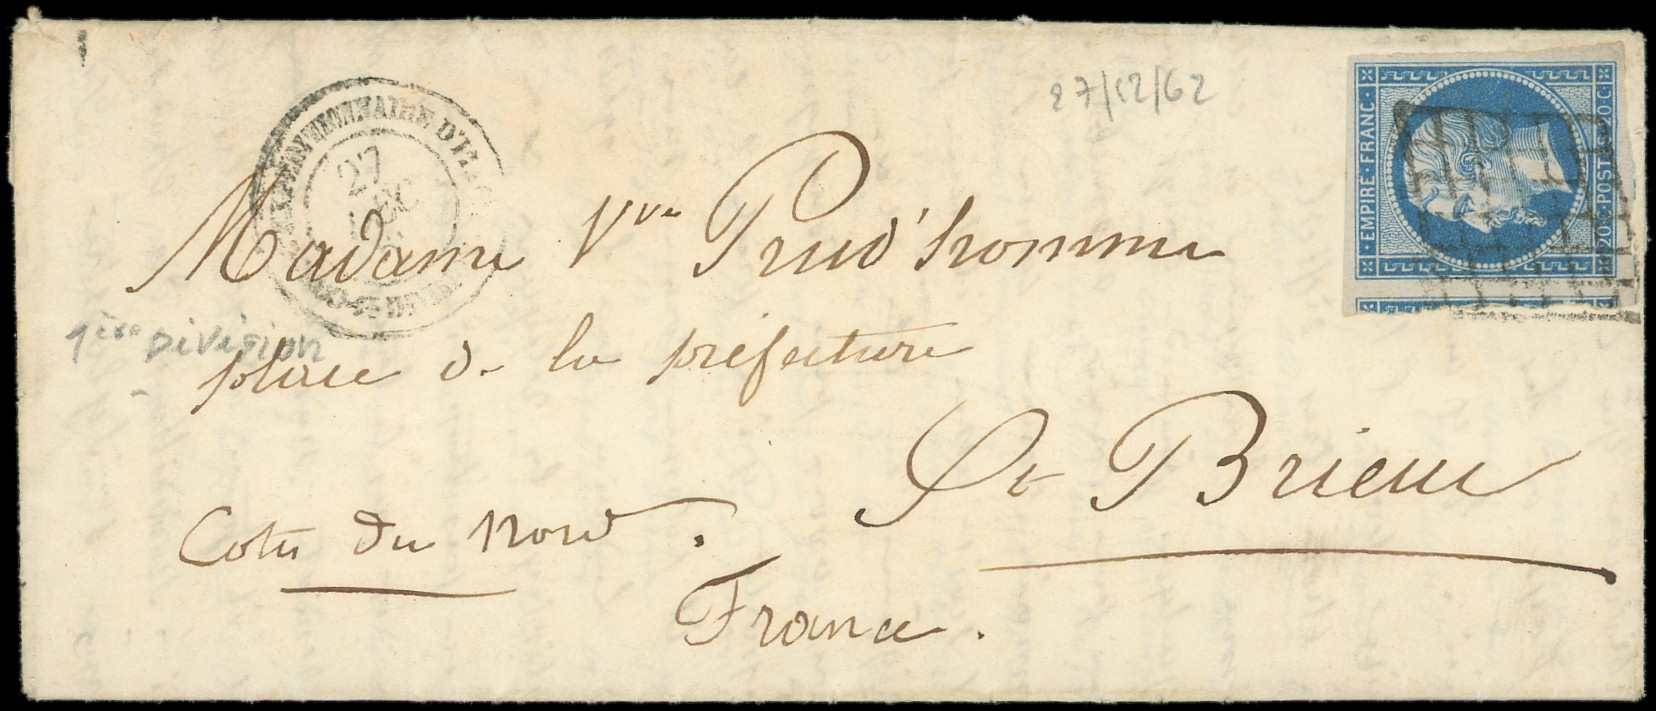 27/12/62
EMPIRE · FRANC ·
20 c · POST · 20 C
27
Madame Vve Prud'homme
1ère Division
place de la préfecture
St Brieuc
Cotes du Nord.
France.